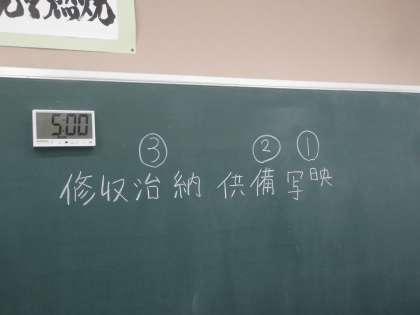 燃焼
5:00
③ ② ①
修収治納 供備写映